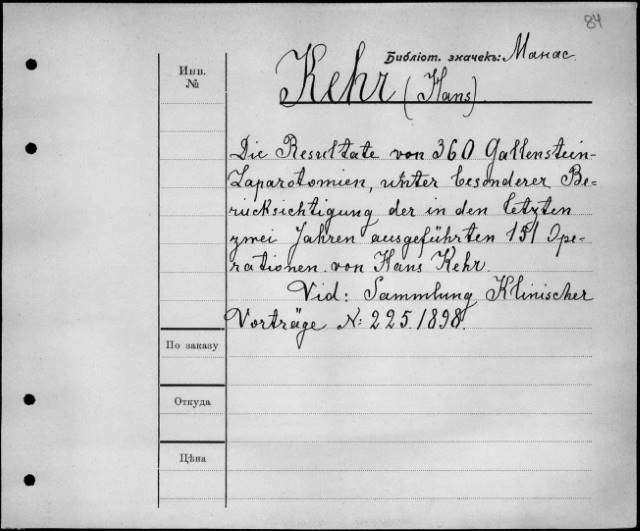 84
Библіот. значекъ: Манас.
Инв.
№
Kehr (Hans).
Die Resultate von 360 Gallenstein-
Laparotomien, unter besonderer Be-
rücksichtigung der in den letzten
zwei Jahren ausgeführten 151 Ope-
rationen. von Hans Kehr.
Vid: Sammlung Klinischer
Vorträge N: 225. 1898.
По заказу
Откуда
Цѣна